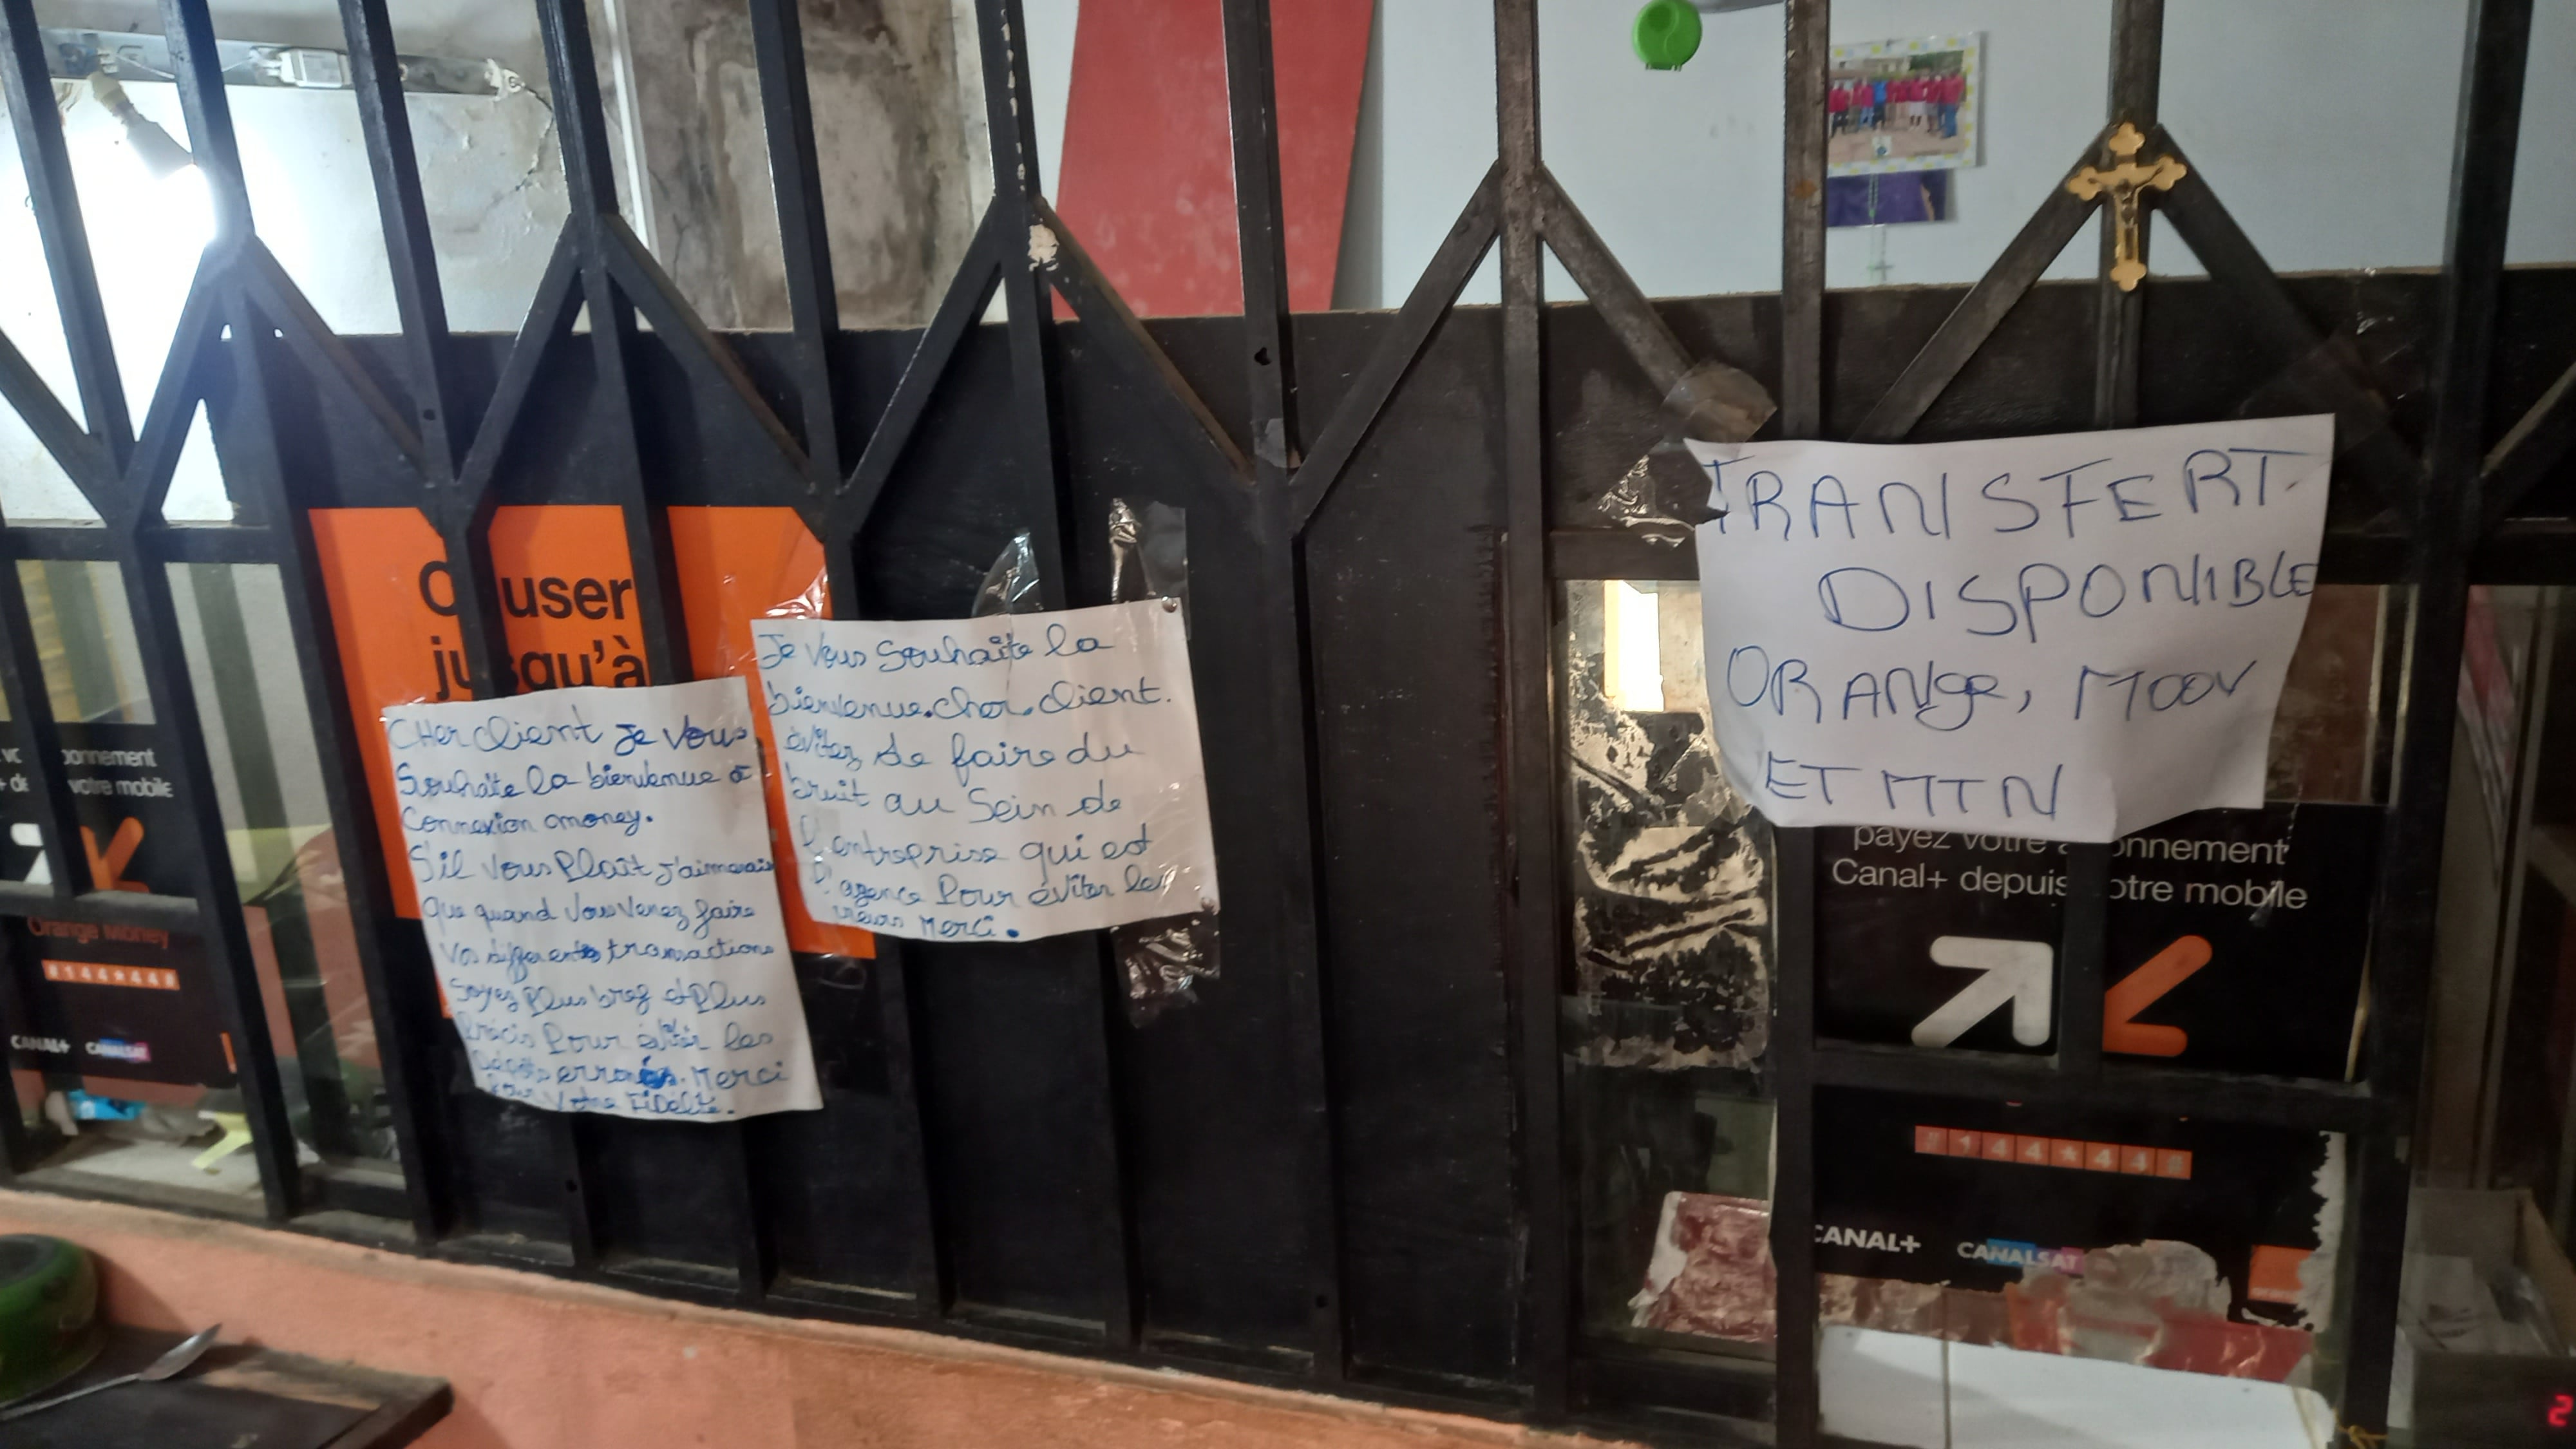 user
jusqu'à
CHer client je vous
Souhaite la bienvenue à
Connexion money.
S'il vous Plaît j'aimerais
que quand vous venez faire
vos differents transactions
soyez Plus bref et Plus
Précis Pour éviter les
Dépôts erronés. Merci
Pour Votre FiDelité.
Je vous souhaite la
bienvenue. cher client.
évitez de faire du
bruit au sein de
l'entreprise qui est
l'agence Pour éviter les
Merci.
TRANSFERT
DISPONIBLE
ORANge, MOOV
ET MTN
payez votre onnement
Canal+ depuis otre mobile
#144*44#
CANAL+ CANALSAT
onnement
votre mobile
Orange Money
#144*44#
CANAL+ CANALSAT
2